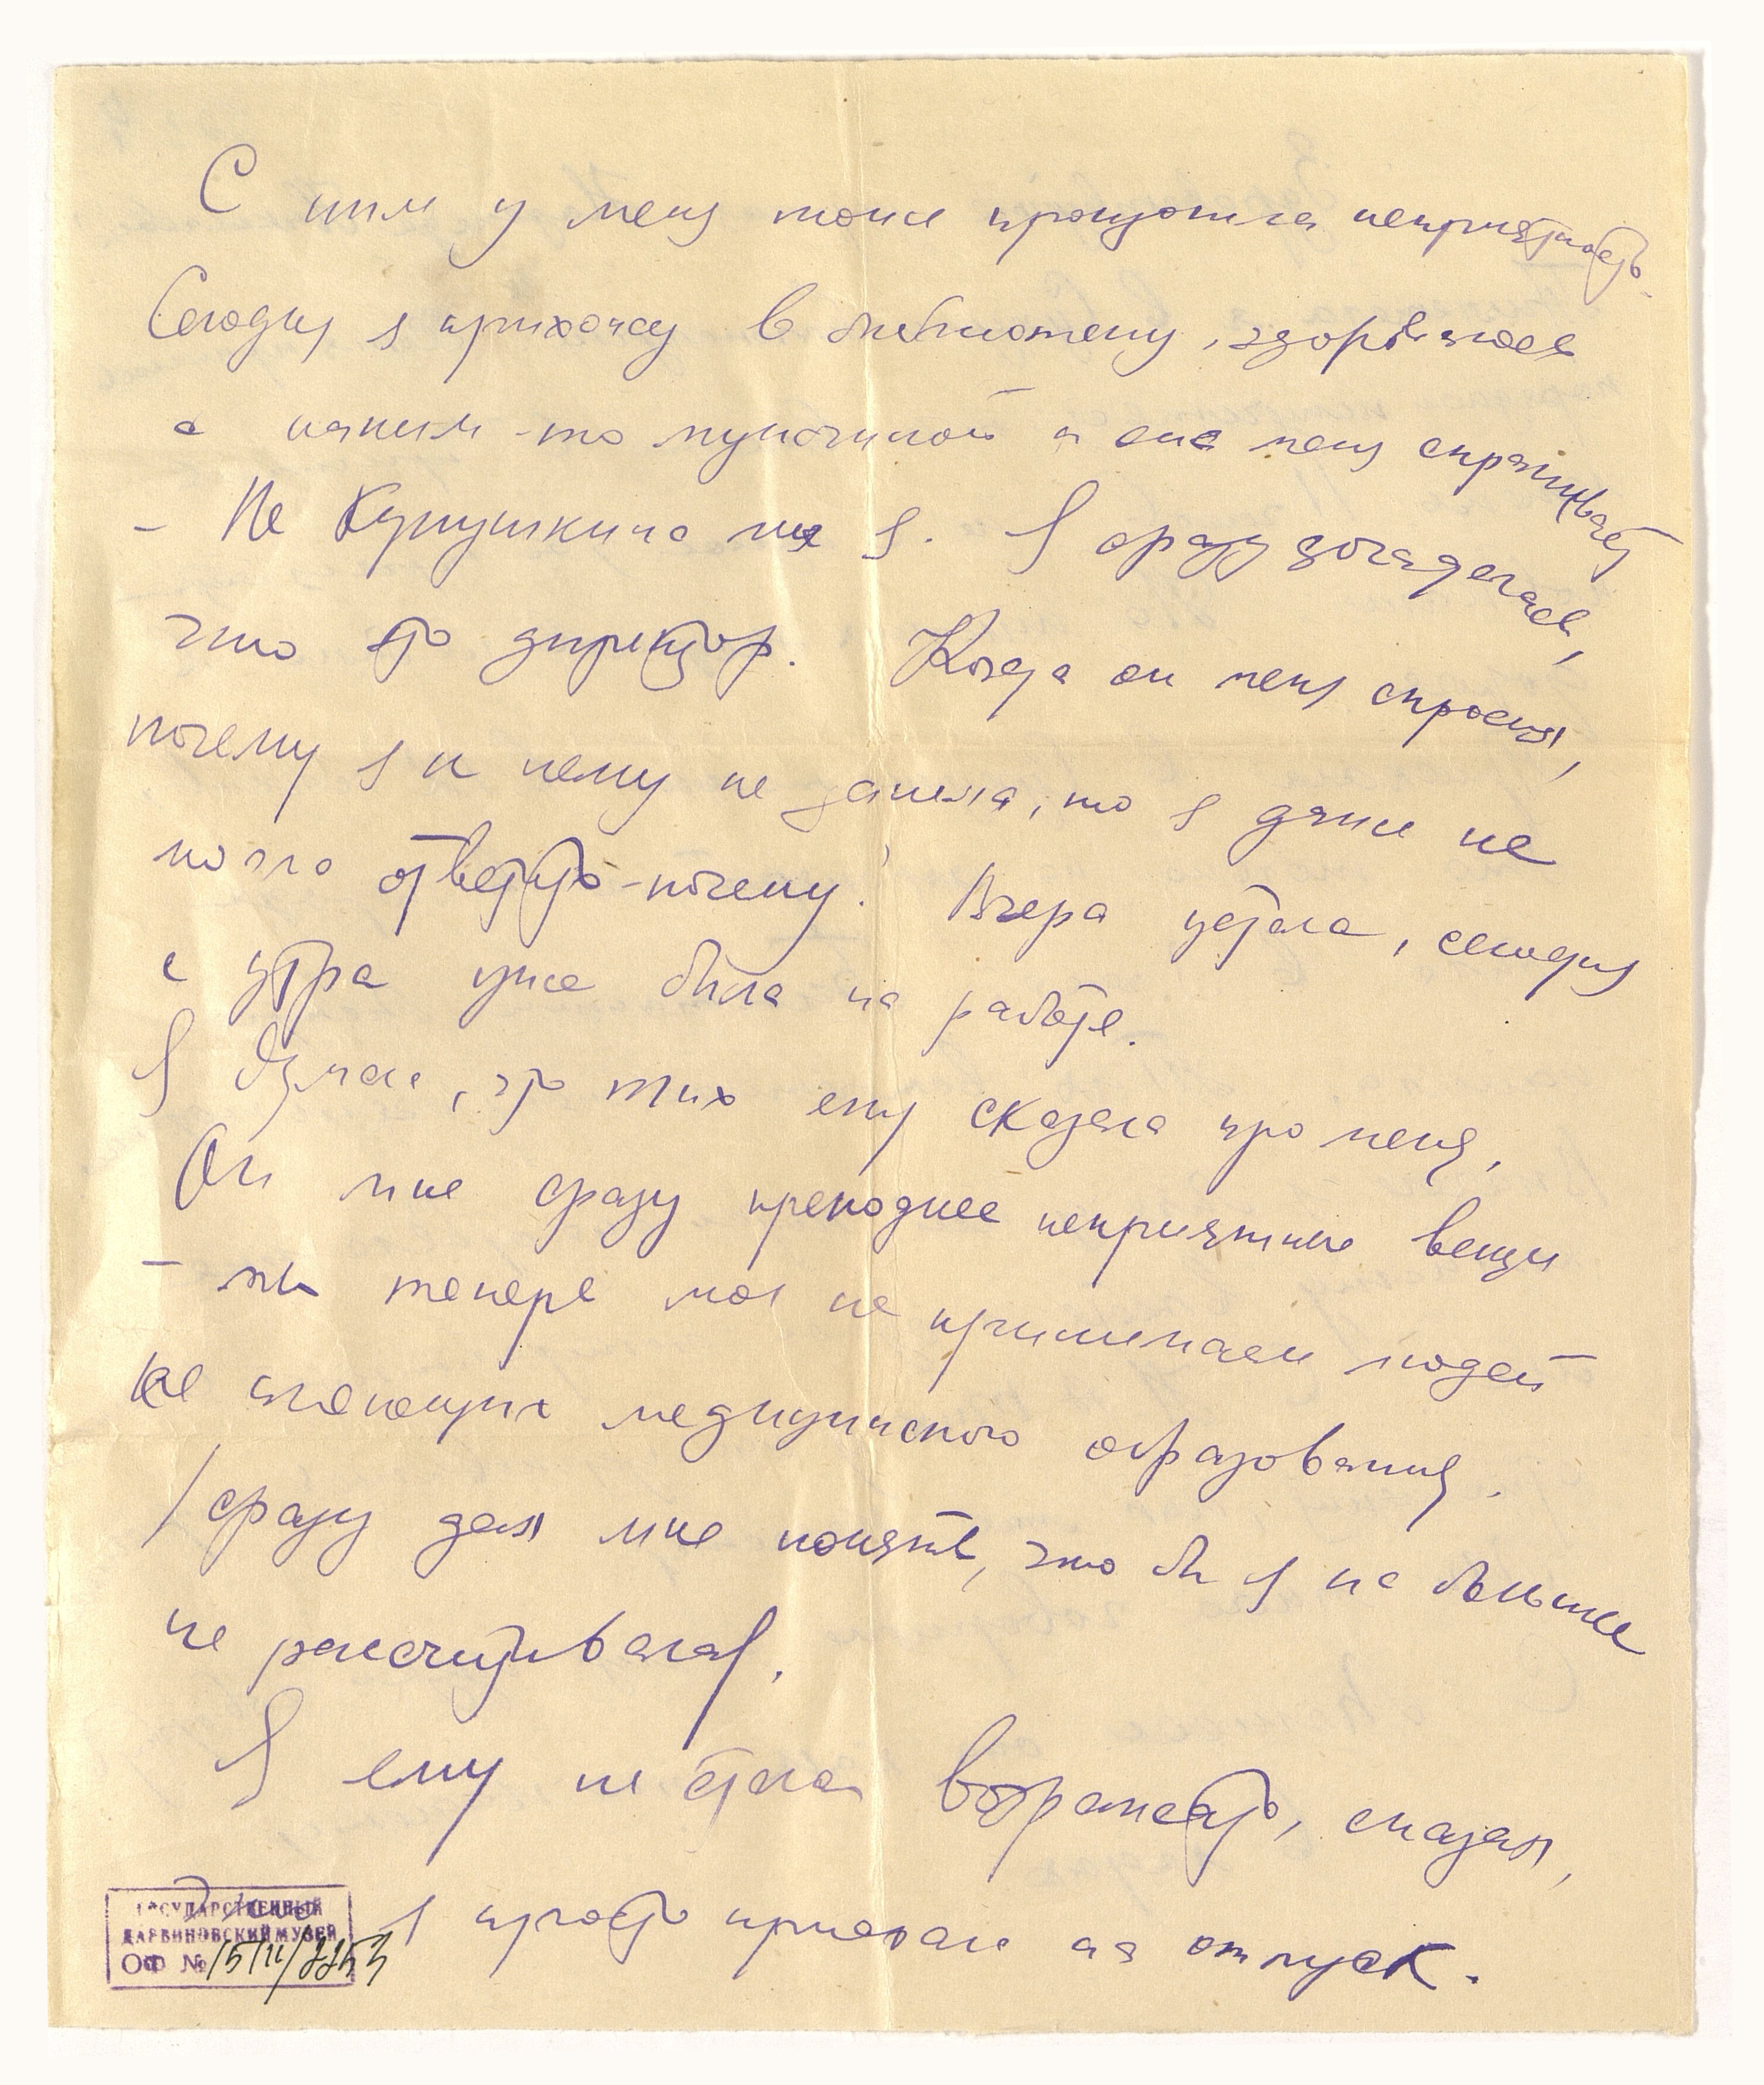 С ним у меня тоже произошла неприятность.
Сегодня я прихожу в библиотеку, здороваюсь
с каким-то мужчиной и он меня спрашивает
– Не Кукушкина ли я. Я сразу догадалась,
что это директор. Когда он меня спросил,
почему я к нему не зашла, то я даже не
могла ответить – почему. Вчера устала, сегодня
с утра уже была на работе.
Я думаю, что Тих ему сказала про меня.
Он мне сразу преподнес неприятные вещи
– мы теперь мол не принимаем людей
не имеющих медицинского образования.
/сразу дал мне понять, что бы я на больше
не рассчитывала/.
Я ему не стала возражать, сказала,
что я просто приехала на отпуск.
ГОСУДАРСТВЕННЫЙ
ДАРВИНОВСКИЙ МУЗЕЙ
ОФ №